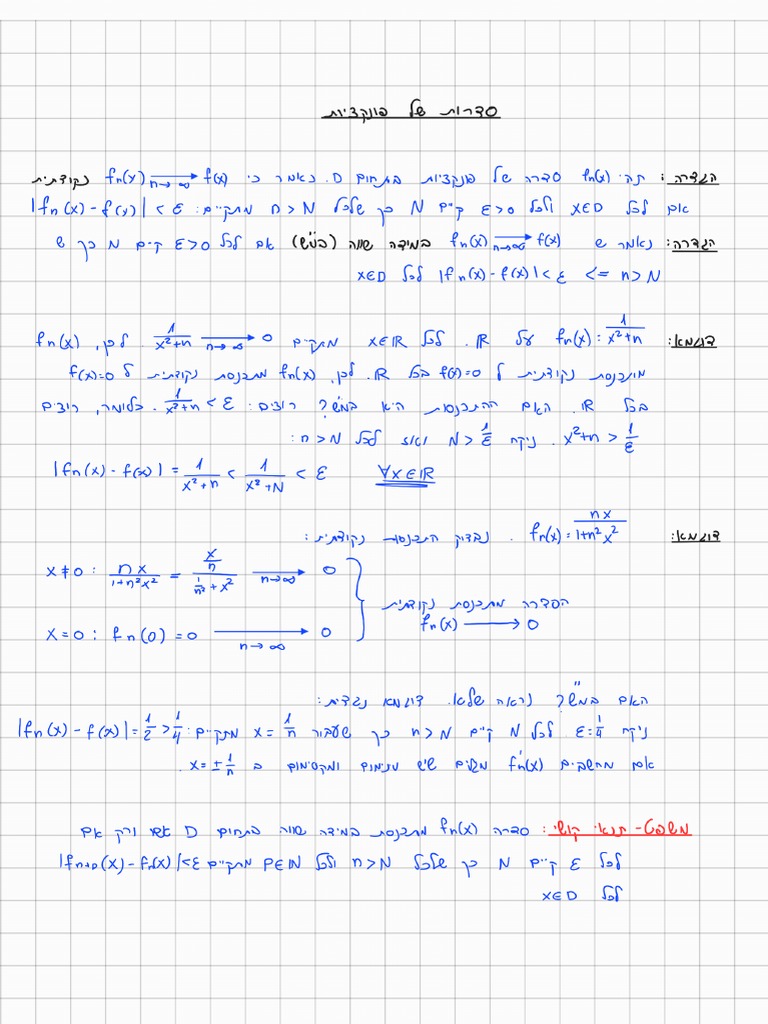 סדרות של פונקציות
הגדרה: תהי fn(x) סדרה של פונקציות בתחום D. נאמר כי fn(x) →n→∞ f(x) נקודתית
אם לכל x∈D ולכל ε>0 קיים N כך שלכל n>N מתקיים: |fn(x)-f(x)|<ε
הגדרה: נאמר ש fn(x) →n→∞ f(x) במידה שווה (במ"ש) אם לכל ε>0 קיים N כך ש
n>N => |fn(x)-f(x)|<ε לכל x∈D
דוגמא: fn(x)=1/(x²+n) על ℝ. לכל x∈ℝ מתקיים 1/(x²+n) →n→∞ 0. לכן, fn(x)
מתכנסת נקודתית ל f(x)=0 בכל ℝ. לכן, fn(x) מתכנסת נקודתית ל f(x)=0
בכל ℝ. האם ההתכנסות היא במ"ש? רוצים: 1/(x²+n)<ε. כלומר, רוצים
x²+n>1/ε. ניקח N>1/ε ואז לכל n>N:
|fn(x)-f(x)|=1/(x²+n)<1/(x²+N)<ε ∀x∈ℝ
דוגמא: fn(x)=nx/(1+n²x²). נבדוק התכנסות נקודתית:
x≠0: nx/(1+n²x²)=(x/n)/(1/n²+x²) →n→∞ 0
הסדרה מתכנסת נקודתית
fn(x)→0
x=0: fn(0)=0 →n→∞ 0
האם במ"ש? נראה שלא. דוגמא נגדית:
ניקח ε=1/4. לכל N קיים n>N כך שעבור x=1/n מתקיים: |fn(x)-f(x)|=1/2>1/4
אם מחשבים f'n(x) מגלים שיש מינימום ומקסימום ב x=±1/n.
משפט- תנאי קושי: סדרה fn(x) מתכנסת במידה שווה בתחום D אם ורק אם
לכל ε קיים N כך שלכל n>N ולכל p∈ℕ מתקיים |fn+p(x)-fn(x)|<ε
לכל x∈D